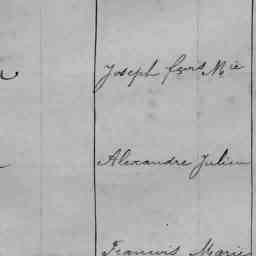 Joseph fçois Mie
Alexandre Julien
Francois Marie